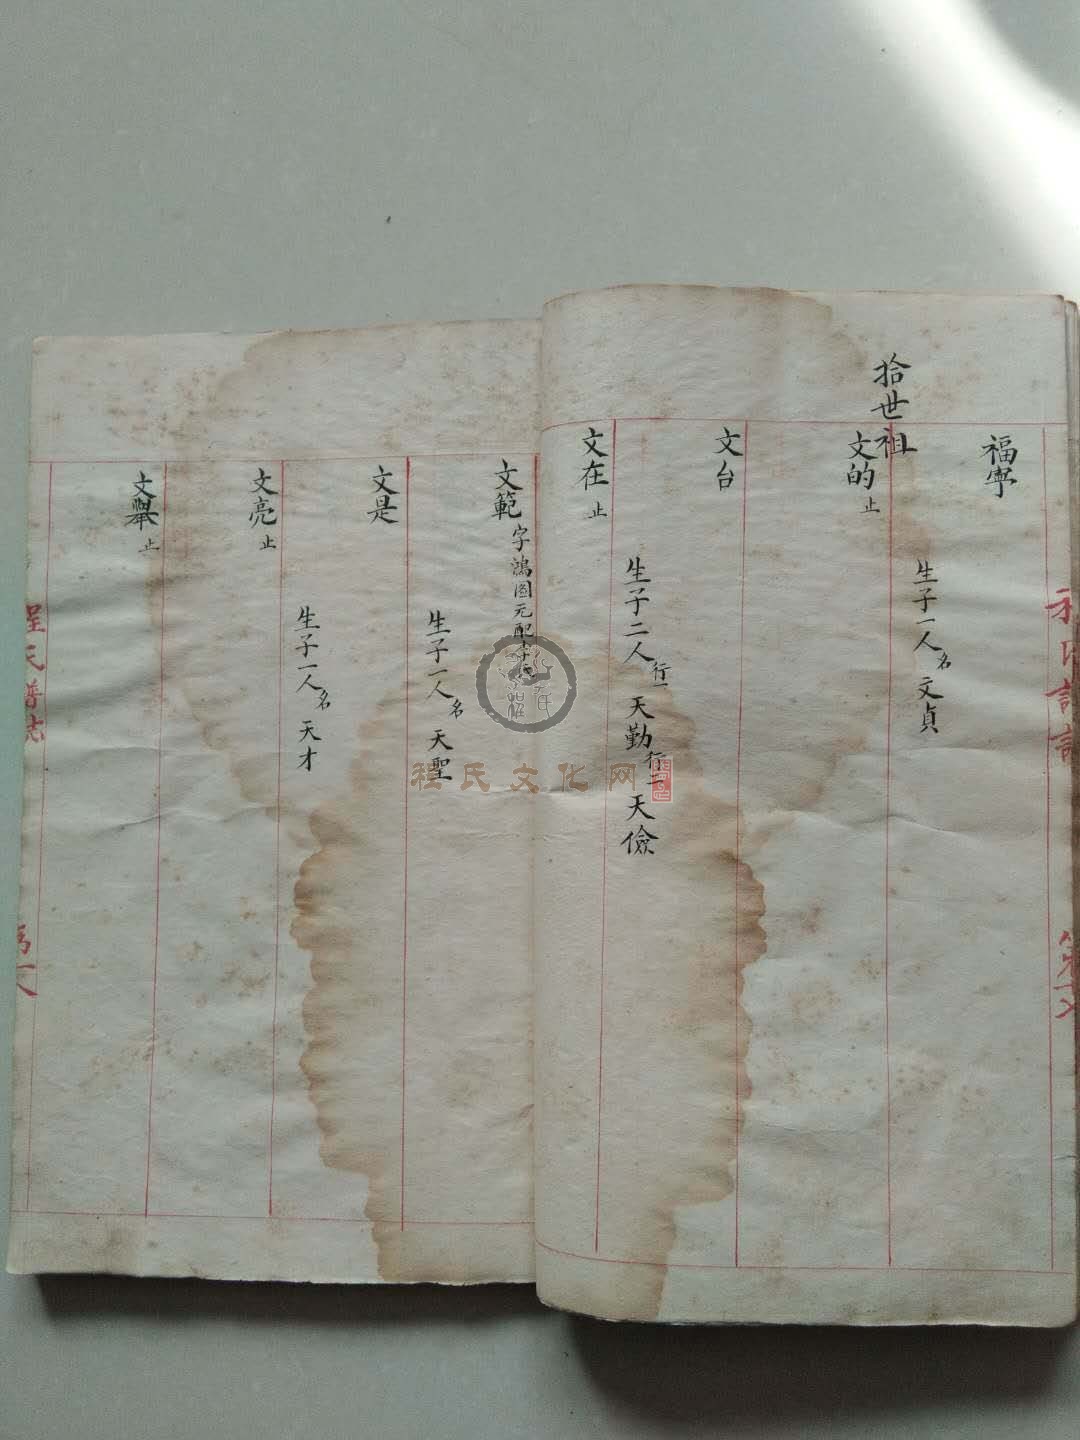 福寧
生子一人名文貞
拾世祖
文的止
文台
生子二人行一天勤行二天儉
文在止
文範字鴻图元配李氏
生子一人名天聖
文是
生子一人名天才
文亮止
文舉止
程氏譜誌
程氏文化网